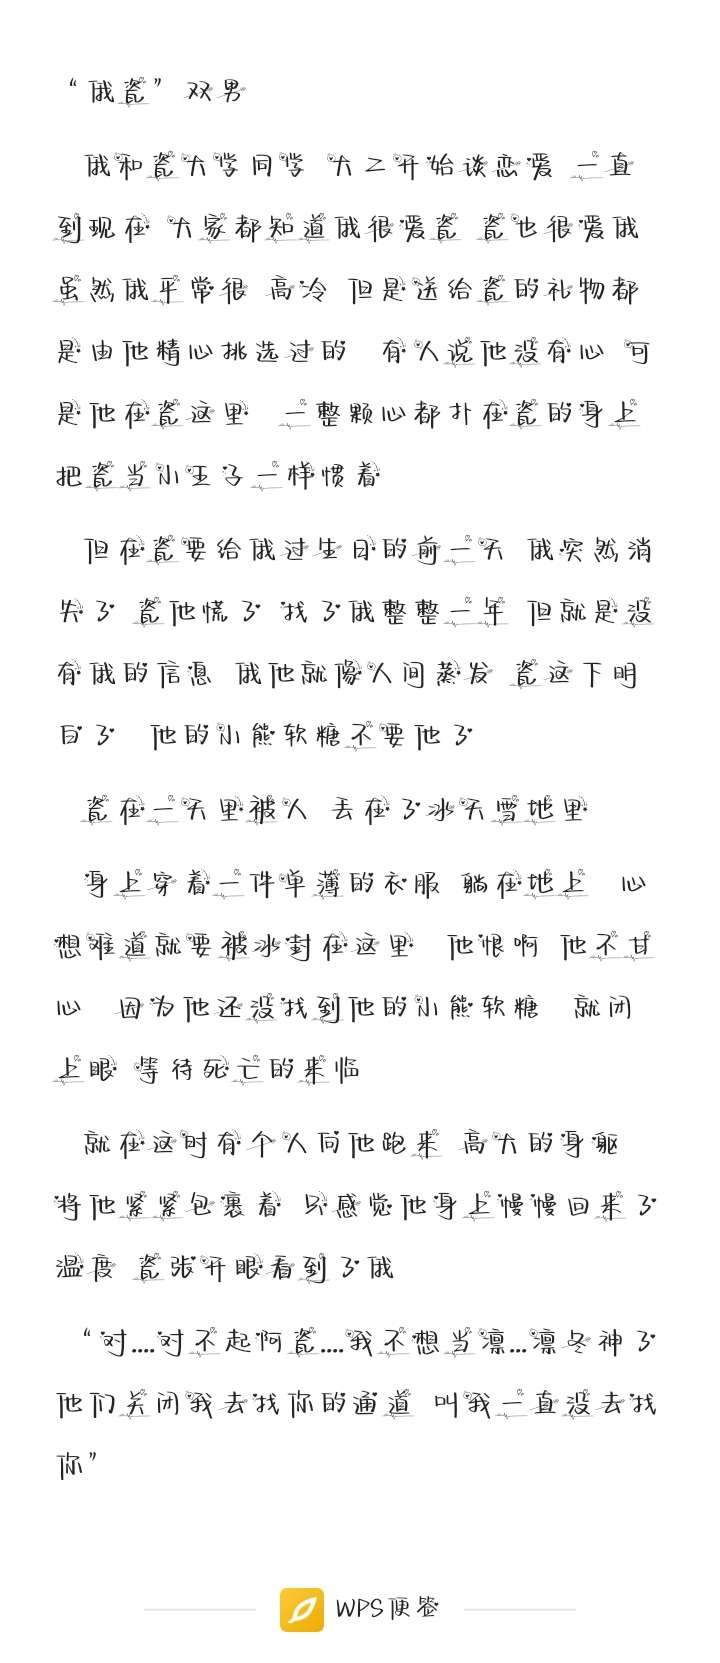 “俄瓷” 双男
俄和瓷大学同学 大二开始谈恋爱 一直
到现在 大家都知道俄很爱瓷 瓷也很爱俄
虽然俄平常很 高冷 但是送给瓷的礼物都
是由他精心挑选过的 有人说他没有心 可
是他在瓷这里 一整颗心都扑在瓷的身上
把瓷当小王子一样惯着
但在瓷要给俄过生日的前一天 俄突然消
失了 瓷他慌了 找了俄整整一年 但就是没
有俄的信息 俄他就像人间蒸发 瓷这下明
白了 他的小熊软糖不要他了
瓷在一天里被人 丢在了冰天雪地里
身上穿着一件单薄的衣服 躺在地上 心
想难道就要被冰封在这里 他恨啊 他不甘
心 因为他还没找到他的小熊软糖 就闭
上眼 等待死亡的来临
就在这时有个人向他跑来 高大的身躯
将他紧紧包裹着 只感觉他身上慢慢回来了
温度 瓷张开眼看到了俄
“对....对不起阿瓷....我不想当凛...凛冬神了
他们关闭我去找你的通道 叫我一直没去找
你”
WPS便签